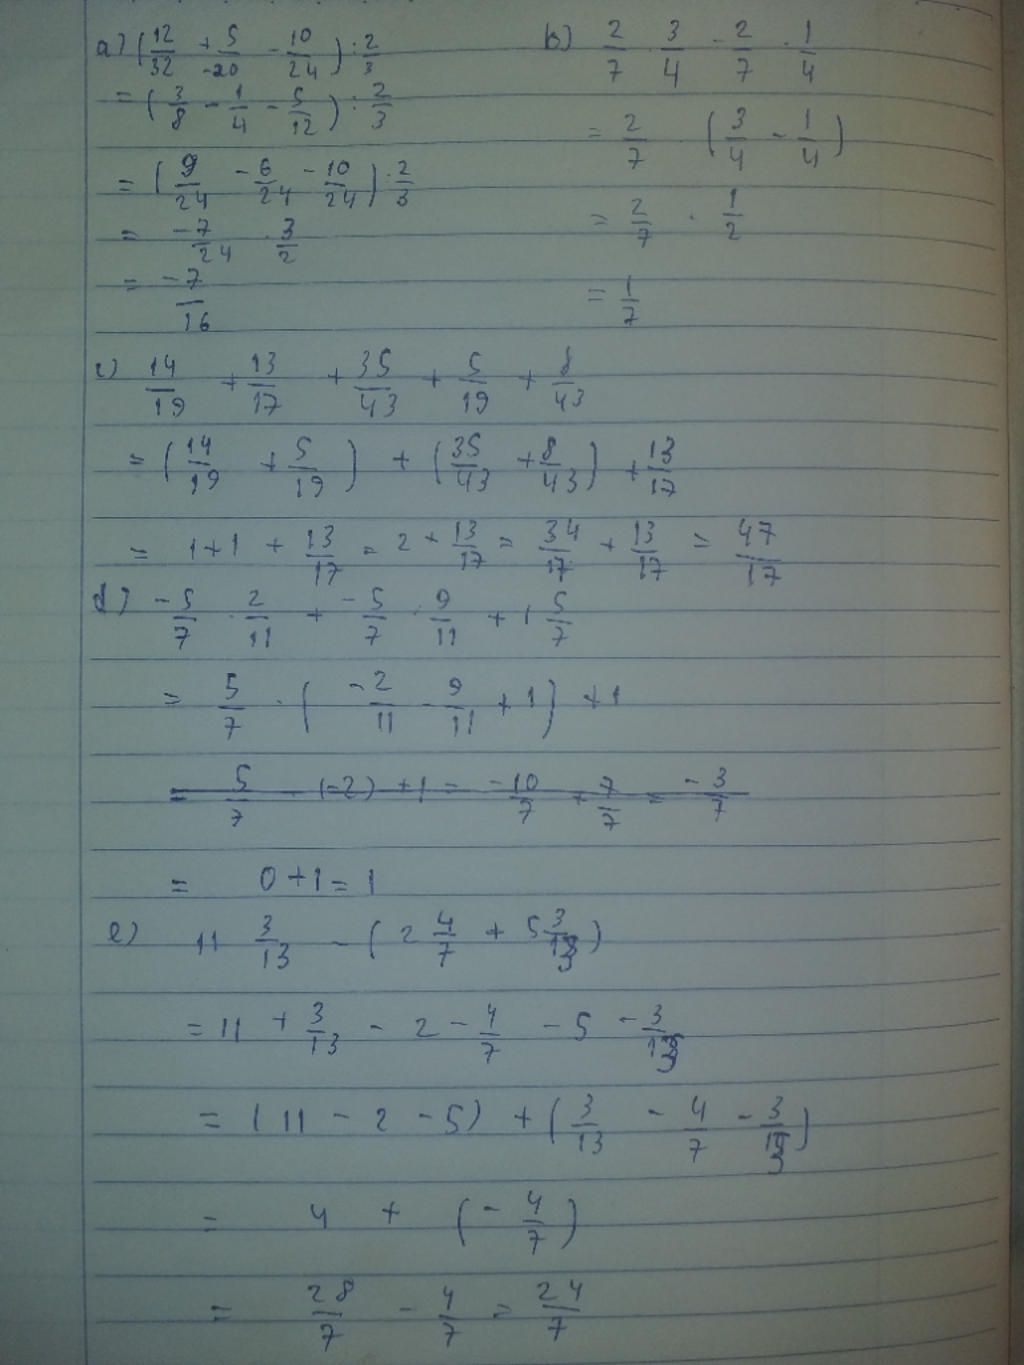 a) (12/32 + 5/-20 - 10/24) : 2/3
= (3/8 - 1/4 - 5/12) : 2/3
= (9/24 - 6/24 - 10/24) : 2/3
= -7/24 . 3/2
= -7/16
b) 2/7 . 3/4 - 2/7 . 1/4
= 2/7 . (3/4 - 1/4)
= 2/7 . 1/2
= 1/7
c) 14/19 + 13/17 + 35/43 + 5/19 + 8/43
= (14/19 + 5/19) + (35/43 + 8/43) + 13/17
= 1+1 + 13/17 = 2 + 13/17 = 34/17 + 13/17 = 47/17
d) -5/7 . 2/11 + -5/7 . 9/11 + 1 5/7
= 5/7 . (-2/11 - 9/11 + 1) + 1
= 5/7 - (-2) + 1 = -10/7 + 7/7 = -3/7
= 0+1 = 1
e) 11 3/13 - (2 4/7 + 5 3/13)
= 11 + 3/13 - 2 - 4/7 - 5 - 3/13
= (11 - 2 - 5) + (3/13 - 4/7 - 3/13)
= 4 + (- 4/7)
= 28/7 - 4/7 = 24/7